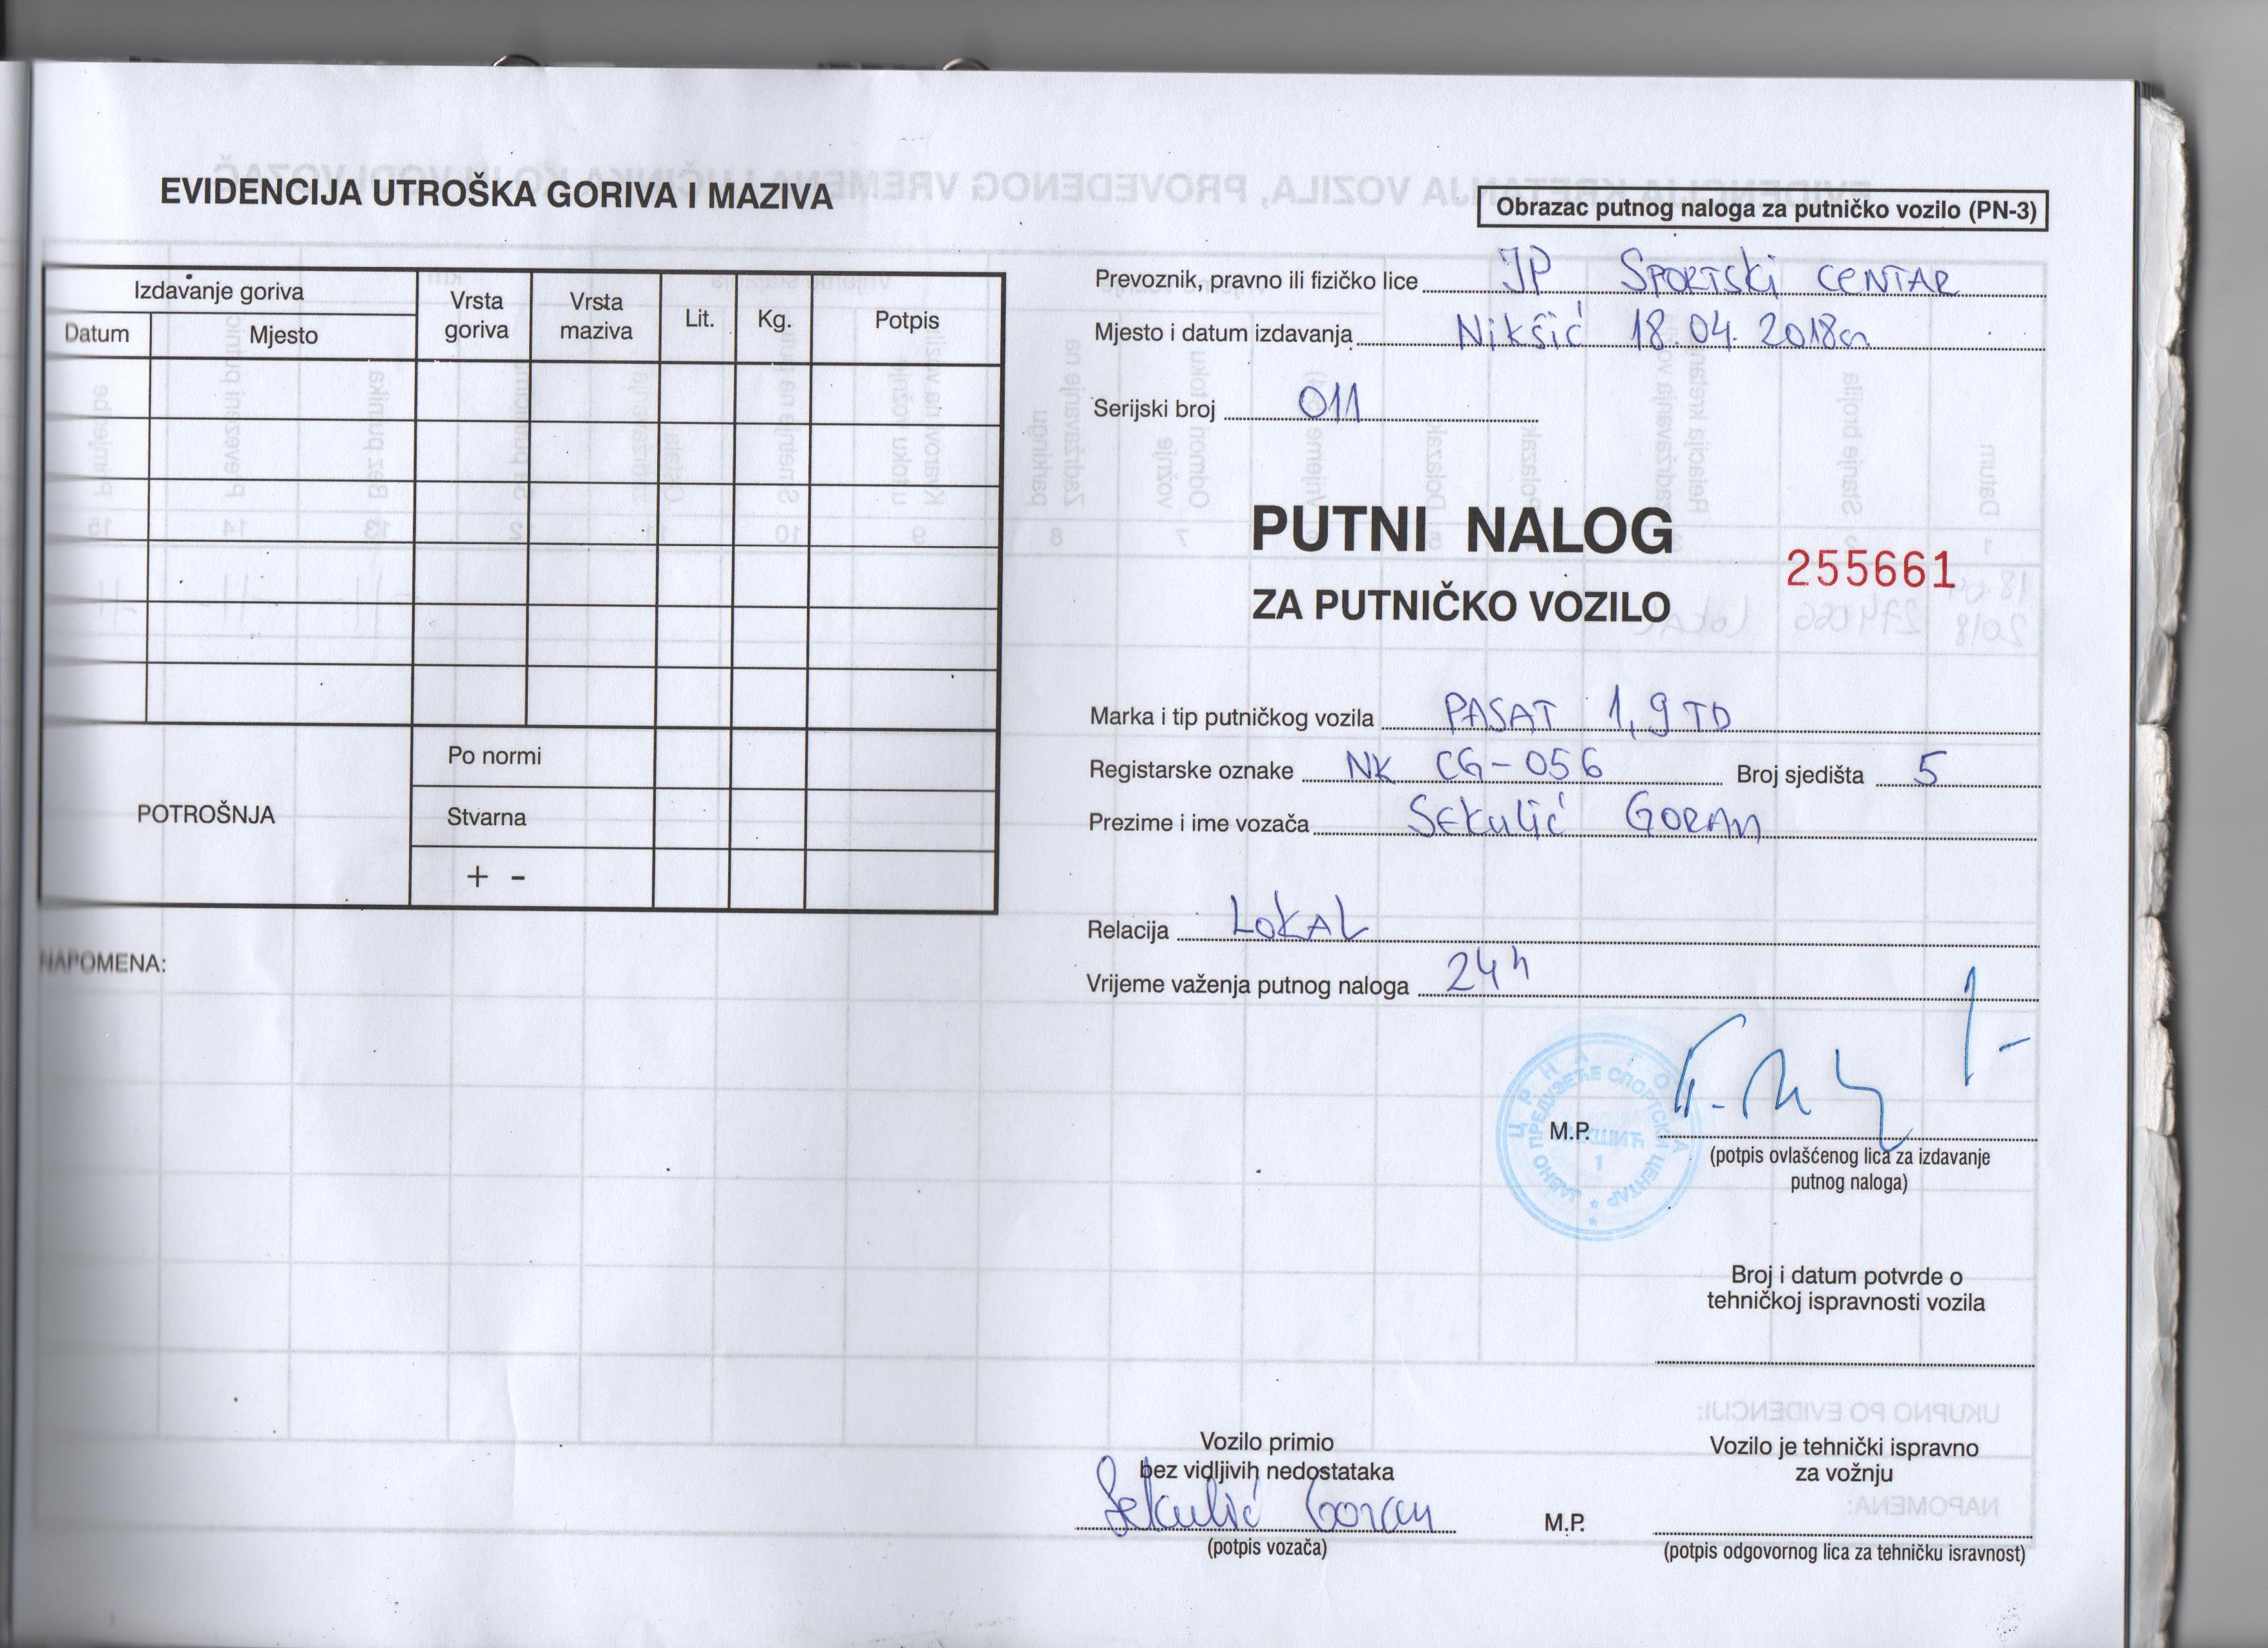 EVIDENCIJA UTROŠKA GORIVA I MAZIVA
Izdavanje goriva
Datum
Mjesto
Vrsta goriva
Vrsta maziva
Lit.
Kg.
Potpis
POTROŠNJA
Po normi
Stvarna
+ -
NAPOMENA:
Obrazac putnog naloga za putničko vozilo (PN-3)
Prevoznik, pravno ili fizičko lice JP SPORTSKI CENTAR
Mjesto i datum izdavanja Nikšić 18.04.2018
Serijski broj 011
PUTNI NALOG
255661
ZA PUTNIČKO VOZILO
Marka i tip putničkog vozila PASAT 1,9 TD
Registarske oznake NK CG-056 Broj sjedišta 5
Prezime i ime vozača SEKULIĆ GORAN
Relacija LOKAL
Vrijeme važenja putnog naloga 24h
ЦРНА ГОРА
ЈАВНО ПРЕДУЗЕЋЕ СПОРТСКИ ЦЕНТАР
1
M.P.
(potpis ovlašćenog lica za izdavanje
putnog naloga)
Broj i datum potvrde o
tehničkoj ispravnosti vozila
Vozilo primio
bez vidljivih nedostataka
Sekulić Goran
(potpis vozača)
M.P.
Vozilo je tehnički ispravno
za vožnju
(potpis odgovornog lica za tehničku isravnost)